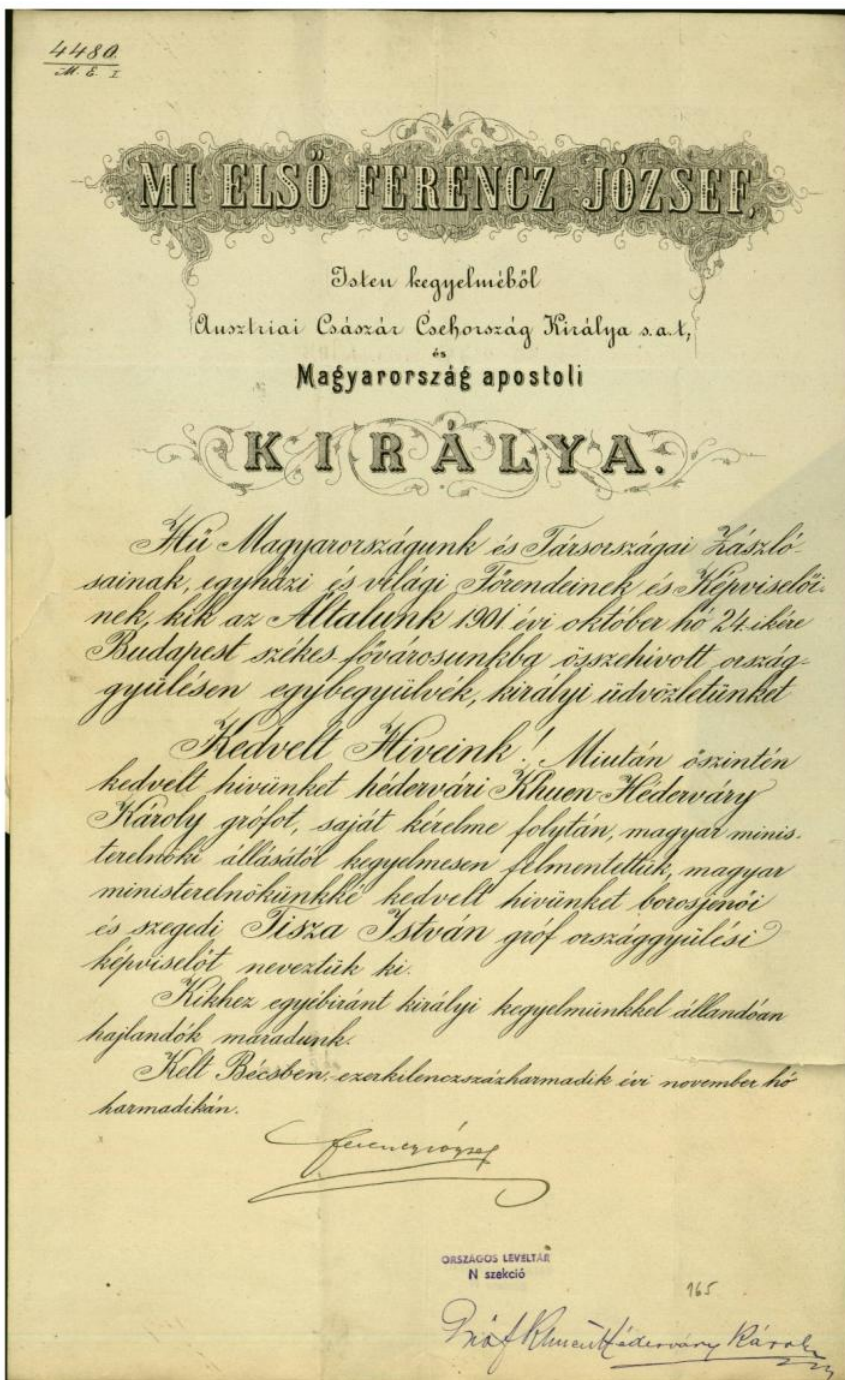 4480.
M. E. I
MI ELSŐ FERENCZ JÓZSEF,
Isten kegyelméből
Ausztriai Császár Csehország Királya s.a.t,
és
Magyarország apostoli
KIRÁLYA.
Hű Magyarországunk és Társországai Zászló-
sainak, egyházi és világi Főrendeinek és Képviselői-
nek, kik az Általunk 1901 évi október hó 24-ikére
Budapest székes-fővárosunkba összehivott ország-
gyülésen egybegyülvék, királyi üdvözletünket
Kedvelt Hiveink! Miután őszintén
kedvelt hivünket hédervári Khuen-Héderváry
Károly grófot, saját kérelme folytán, magyar minis-
terelnöki állásától kegyelmesen felmentettük, magyar
ministerelnökünkké kedvelt hivünket borosjenői
és szegedi Tisza István gróf országgyülési
képviselőt neveztük ki.
Kikhez egyébiránt királyi kegyelmünkkel állandóan
hajlandók maradunk.
Kelt Bécsben, ezerkilenczszázharmadik évi november hó
harmadikán.
Ferencz József
ORSZÁGOS LEVÉLTÁR
N szekció
165
Gróf Khuen Héderváry Károly